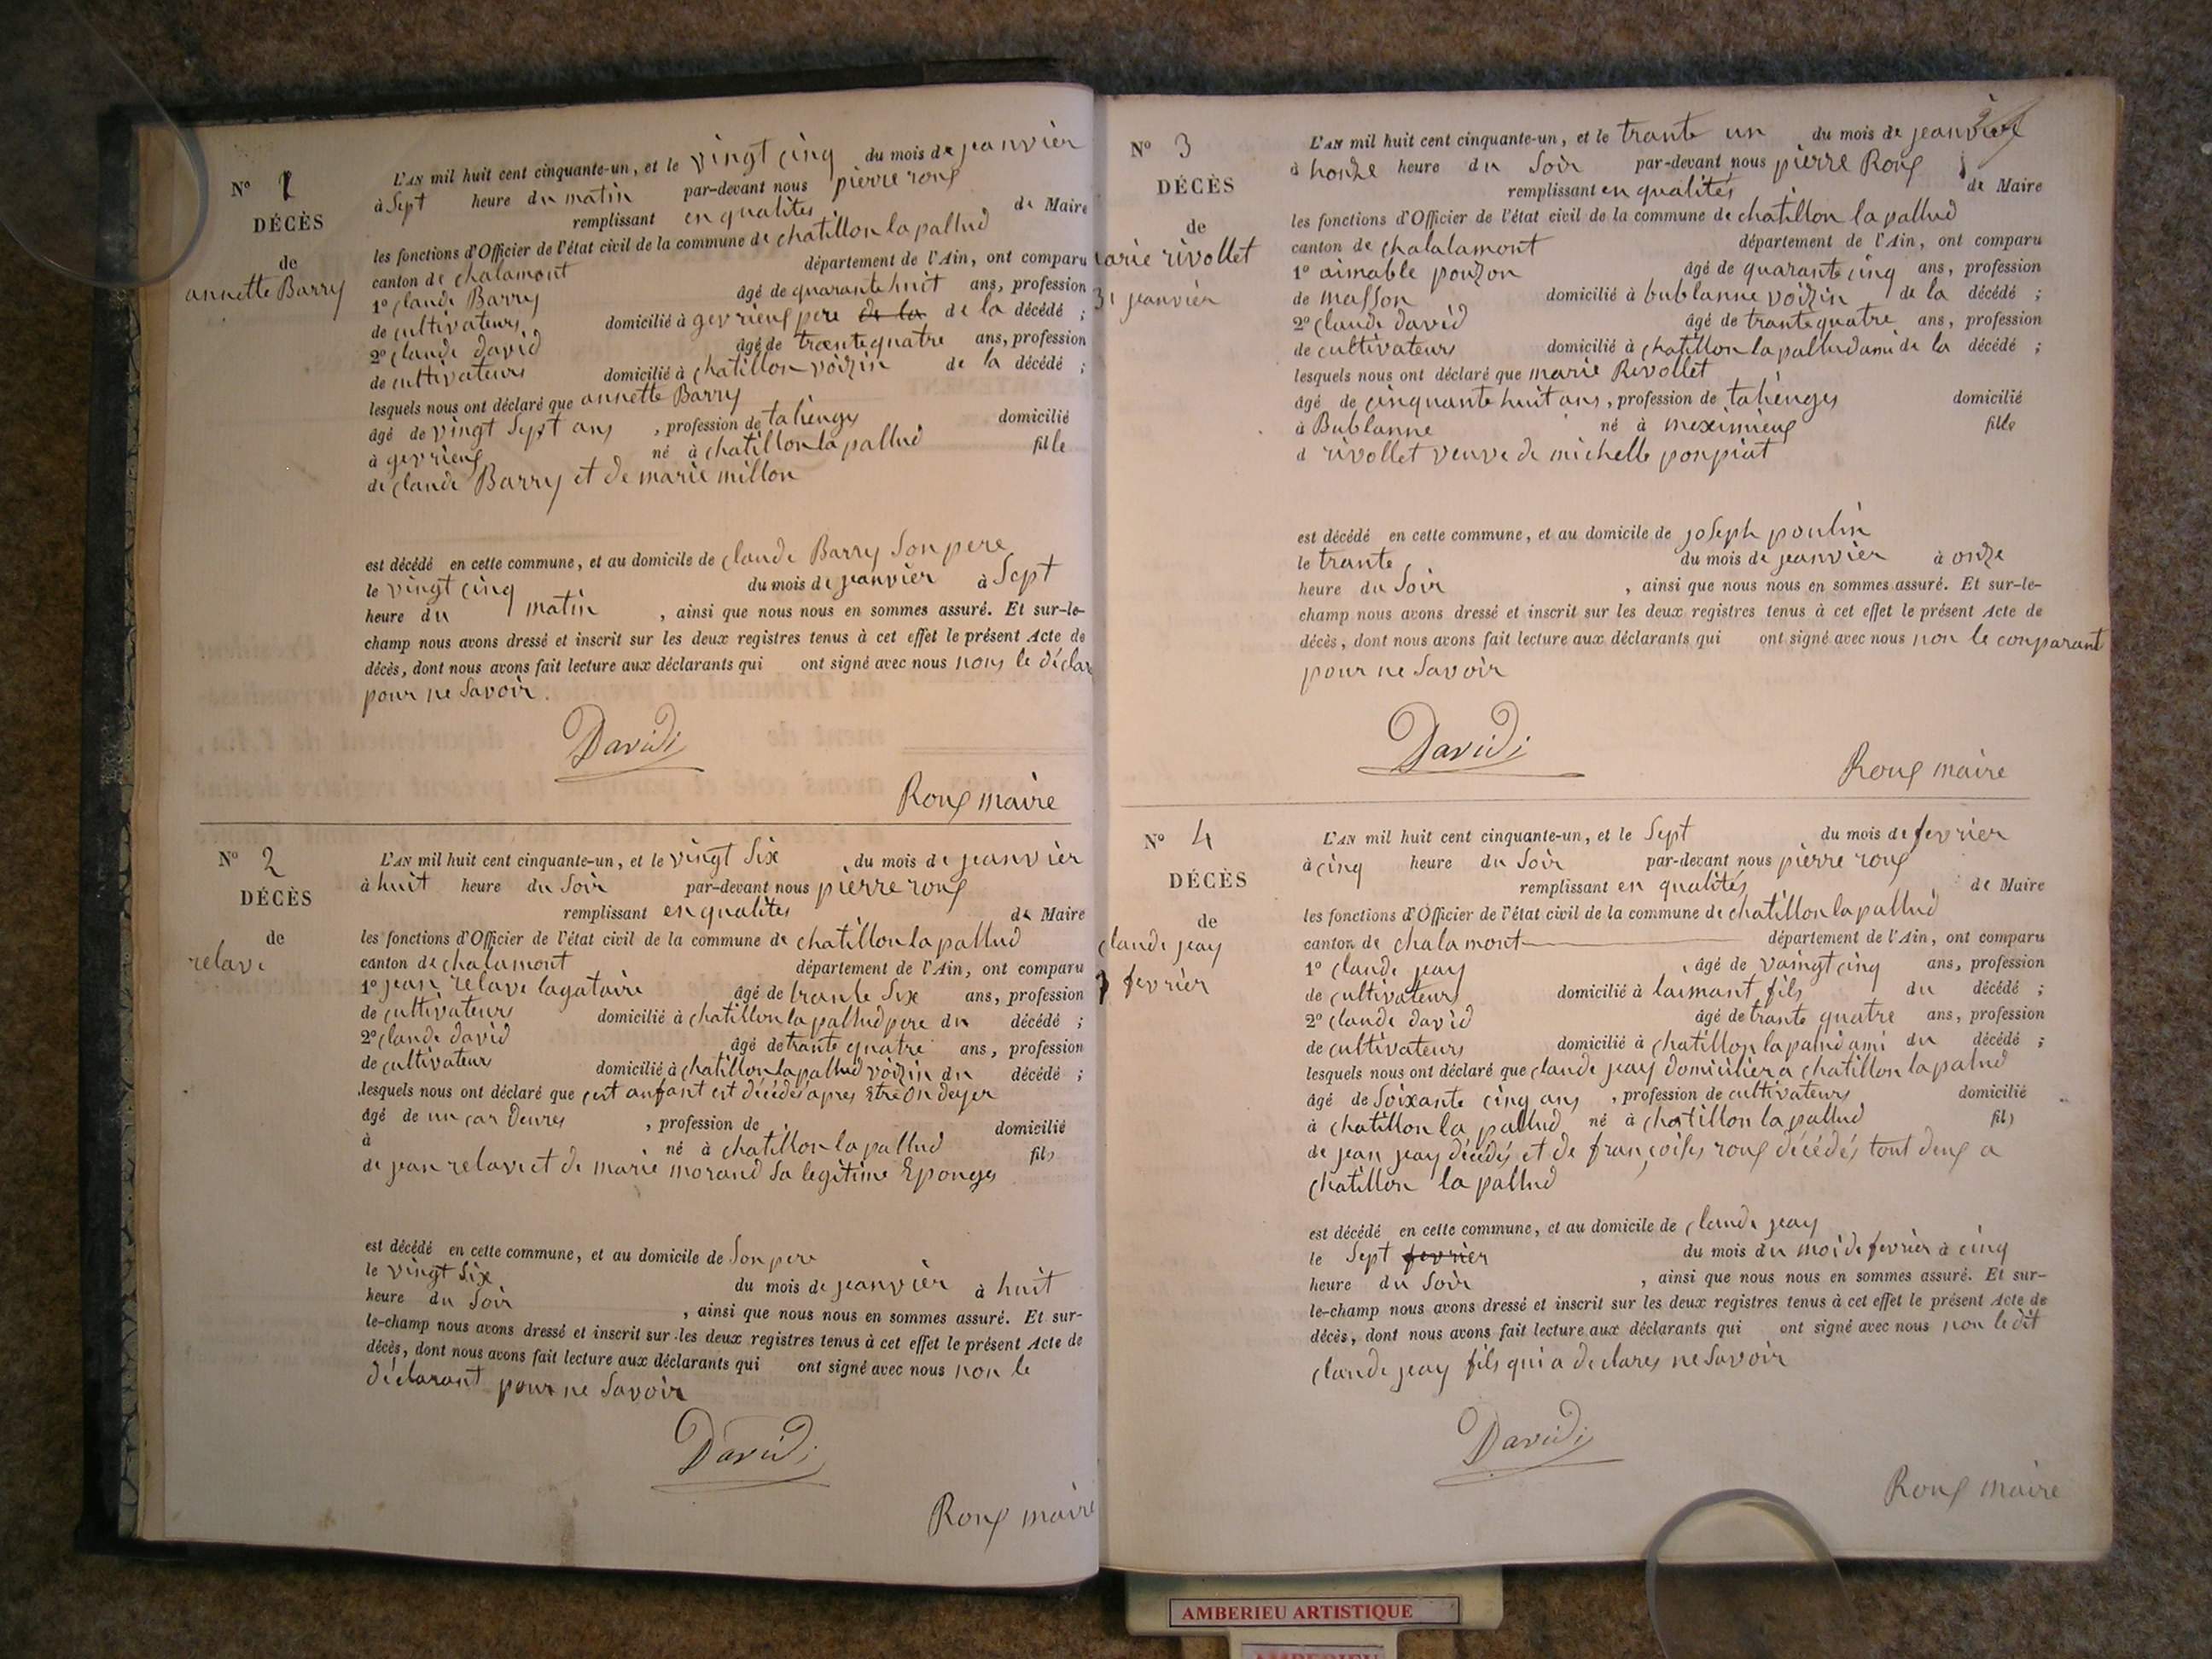 Nº 1
DÉCÈS
de
annette Barry
L'AN mil huit cent cinquante-un, et le vingt cinq du mois de jeanvier
à Sept heure du matin par-devant nous pierre roux
remplissant en qualités de Maire
les fonctions d'Officier de l'état civil de la commune de chatillon la pallud
canton de chalamont département de l'Ain, ont comparu
1º claude Barry âgé de quarante huit ans, profession
de cultivateurs domicilié à gevrieux pere de la de la décédé ;
2º claude david âgé de trante quatre ans, profession
de cultivateurs domicilié à chatillon voizin de la décédé ;
lesquels nous ont déclaré que annette Barry
âgé de vingt Sept ans , profession de domicilié
à gevrieux né à chatillon la pallud fille
de claude Barry et de marie millon
est décédé en cette commune, et au domicile de claude Barry Son pere
le vingt cinq du mois de jeanvier à Sept
heure du matin , ainsi que nous nous en sommes assuré. Et sur-le-
champ nous avons dressé et inscrit sur les deux registres tenus à cet effet le présent Acte de
décès, dont nous avons fait lecture aux déclarants qui ont signé avec nous nons le déclar
pour ne Savoir.
David
Roux maire
Nº 2
DÉCÈS
de
relave
L'AN mil huit cent cinquante-un, et le vingt Six du mois de jeanvier
à huit heure du Soir par-devant nous pierre roux
remplissant en qualités de Maire
les fonctions d'Officier de l'état civil de la commune de chatillon la pallud
canton de chalamont département de l'Ain, ont comparu
1º jean relave lagataire âgé de trante Six ans, profession
de cultivateurs domicilié à chatillon la pallud pere du décédé ;
2º claude david âgé de trante quatre ans, profession
de cultivateur domicilié à chatillon la pallud voizin du décédé ;
lesquels nous ont déclaré que cest anfant est décédés apres Etre Ondoyer
âgé de un car deures , profession de domicilié
à né à chatillon la pallud fils
de jean relave et de marie morand Sa legitime Epouges
est décédé en cette commune, et au domicile de Son pere
le vingt Six du mois de jeanvier à huit
heure du Soir , ainsi que nous nous en sommes assuré. Et sur-
le-champ nous avons dressé et inscrit sur les deux registres tenus à cet effet le présent Acte de
décès, dont nous avons fait lecture aux déclarants qui ont signé avec nous non le
déclarant pour ne Savoir
David
Roux maire
Nº 3
DÉCÈS
de
marie rivollet
31 jeanvier
L'AN mil huit cent cinquante-un, et le trante un du mois de jeanvier
à honze heure du Soir par-devant nous pierre Roux
remplissant en qualités de Maire
les fonctions d'Officier de l'état civil de la commune de chatillon la pallud
canton de chalalamont département de l'Ain, ont comparu
1º aimable pouzon âgé de quarante cinq ans, profession
de masson domicilié à bublanne voizin de la décédé ;
2º claude david âgé de trante quatre ans, profession
de cultivateurs domicilié à chatillon la pallud ami de la décédé ;
lesquels nous ont déclaré que marie Rivollet
âgé de cinquante huit ans, profession de domicilié
à Bublanne né à meximieux fille
d rivollet veuve de michelle ponpiat
est décédé en cette commune, et au domicile de joseph poulin
le trante du mois de jeanvier à onze
heure du Soir , ainsi que nous nous en sommes assuré. Et sur-le-
champ nous avons dressé et inscrit sur les deux registres tenus à cet effet le présent Acte de
décès, dont nous avons fait lecture aux déclarants qui ont signé avec nous non le conparant
pour ne Savoir
David
Roux maire
Nº 4
DÉCÈS
de
claude jeay
7 fevrier
L'AN mil huit cent cinquante-un, et le Sept du mois de fevrier
à cinq heure du Soir par-devant nous pierre roux
remplissant en qualités de Maire
les fonctions d'Officier de l'état civil de la commune de chatillon la pallud
canton de chalamont département de l'Ain, ont comparu
1º claude jeay âgé de vaingt cinq ans, profession
de cultivateurs domicilié à laimant fils du décédé ;
2º claude david âgé de trante quatre ans, profession
de cultivateurs domicilié à chatillon la palud ami du décédé ;
lesquels nous ont déclaré que claude jeay domicilier a chatillon la palud
âgé de Soixante cinq ans , profession de cultivateurs domicilié
à chatillon la pallud né à chatillon la pallud fils
de jean jeay décédés et de françoises roux décédés tout deux a
chatillon la pallud
est décédé en cette commune, et au domicile de claude jeay
le Sept fevrier du mois du moi de fevrier à cinq
heure du Soir , ainsi que nous nous en sommes assuré. Et sur-
le-champ nous avons dressé et inscrit sur les deux registres tenus à cet effet le présent Acte de
décès, dont nous avons fait lecture aux déclarants qui ont signé avec nous non le dit
claude jeay fils qui a declares ne Savoir
David
Roux maire
AMBERIEU ARTISTIQUE
AMBERIEU